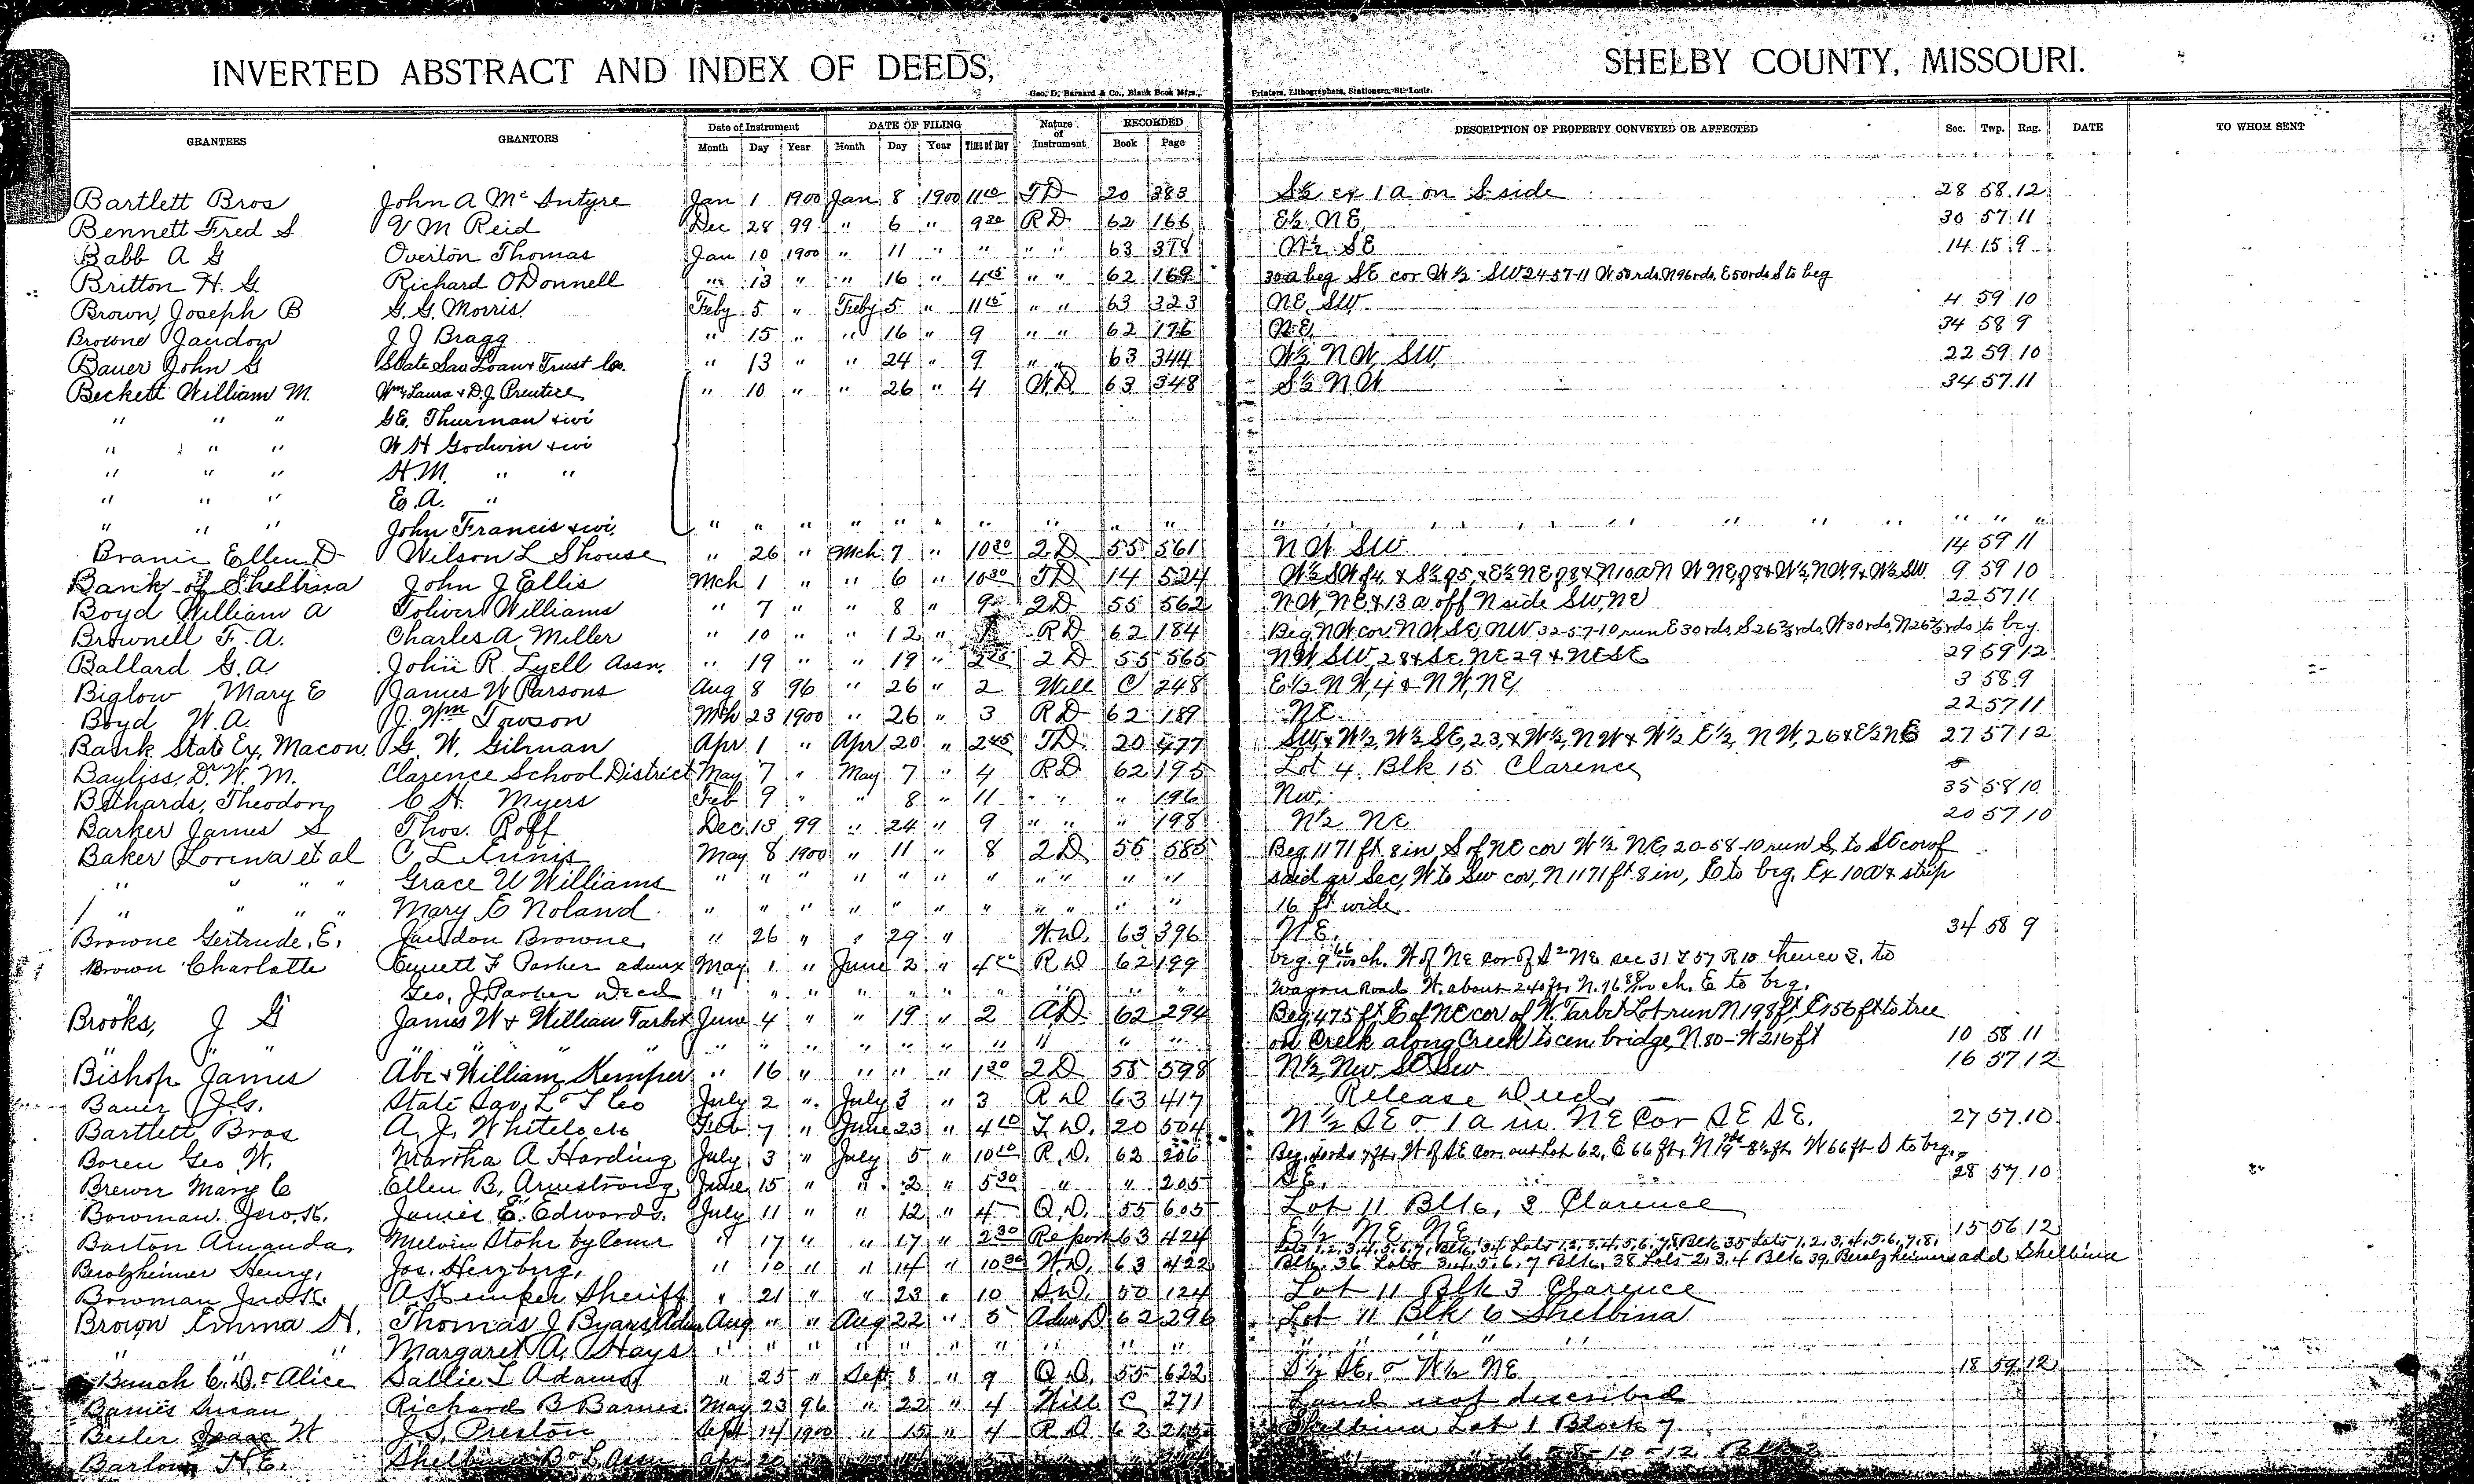 INVERTED ABSTRACT AND INDEX OF DEEDS, SHELBY COUNTY, MISSOURI.
Geo. D. Barnard & Co., Blank Book Mfrs., Printers, Lithographers, Stationers, St. Louis.
GRANTEES GRANTORS Date of Instrument DATE OF FILING Nature of Instrument RECORDED DESCRIPTION OF PROPERTY CONVEYED OR AFFECTED Sec. Twp. Rng. DATE TO WHOM SENT
Month Day Year Month Day Year Time of Day Book Page
Bartlett Bros John A Mc Intyre Jan 1 1900 Jan 8 1900 11 10 TD 20 383 S½ ex 1 a on S side 28 58 12
Bennett Fred S V M Reid Dec 28 99 " 6 " 9 30 RD 62 166 E½ NE 30 57 11
Babb A G Overton Thomas Jan 10 1900 " 11 " " " " 63 378 N½ SE 14 15 9
Britton H. G Richard O'Donnell " 13 " " 16 " 4 45 " " 62 169 30 a beg SE cor W½ SW 24-57-11 W 50 rds. N 96 rds. E 50 rds S to beg
Brown, Joseph B G. G. Morris. Feby 5 " Feby 5 " 11 15 " " 63 323 NE SW 4 59 10
Browne Jaudon J J Bragg " 15 " " 16 " 9 " " 62 176 NE 34 58 9
Bauer John G State Sav Loan & Trust Co. " 13 " " 24 " 9 " " 63 344 W½ NW SW 22 59 10
Beckett William M. Wm & Laura & D.J. Prentice " 10 " " 26 " 4 W.D 63 348 S½ NW 34 57 11
" " " G.E. Thurman & wi
" " " W H Godwin & wi
" " " H.M. " "
" " " E.A. "
" " " John Francis & wi. " " " " " " " " " " " " " "
Ellen D Wilson L Shouse " 26 " Mch 7 " 10 30 2 D 55 561 NW SW 14 59 11
Bank of Shelbina John J Ellis Mch 1 " " 6 " 10 30 TD 14 524 9 59 10
Boyd William A Toliver Williams " 7 " " 8 " 9 2 D 55 562 NW, NE & 13 a off N side SW, NE 22 57 11
Brownell F. A. Charles A Miller " 10 " " 12 " RD 62 184 Beg. NW cor NW SE, NW 32-57-10 run E 30 rds, S 26⅔ rds, W 30 rds, N 26⅔ rds to beg.
Ballard G.A. John R Lyell Assn. " 19 " " 19 " 2 D 55 565 NW SW 28 & SE NE 29 & NE SE 29 59 12
Biglow Mary E James W Parsons Aug 8 96 " 26 " 2 Will C 248 E½ NW, 4 & NW, NE 3 58 9
Boyd W.A. J. Wm Towson Mch 23 1900 " 26 " 3 RD 62 189 NE 22 57 11
Bank State Ex, Macon. G. W. Gilman Apr 1 " Apr 20 " 2 45 TD 20 477 SW, & W½, W½ SE, 23, & W½, NW & W½ E½, NW, 26 & E½ NE 27 57 12
Bayliss, Dr W. M. Clarence School District May 7 " May 7 " 4 RD 62 195 Lot 4 Blk 15 Clarence
Bethards, Theodore C H. Myers Feb 9 " " 8 " 11 " " " 196 NW, 35 58 10
Barker James S Thos. Roff Dec. 13 99 " 24 " 9 " " " 198 N½ NE 20 57 10
Baker Lorena et al C L Ennis May 8 1900 " 11 " 8 2 D 55 585 Beg. 1171 ft. 8 in S of NE cor W½ NE, 20-58-10 run S, to SE cor of
" " " " Grace U Williams " " " " " " " " " " " said qr Sec, W to SW cor, N 1171 ft. 8 in, E to beg. Ex 10 a & strip
" " " " Mary E Noland " " " " " " " " " " " 16 ft wide
Browne Gertrude, E. Jaudon Browne, " 26 " " 29 " W.D. 63 396 N.E. 34 58 9
Brown Charlotte Emett F Parker admx May 1 " June 2 " 4 R D 62 199 beg. 9 66/100 ch. W of NE cor of S 2 NE sec 31 T 57 R 10 thence S. to
Geo. J. Parker Decd " " " " " " " " " " Wagon Road W. about 240 ft. N. 16 88/100 ch. E to beg.
Brooks, J G James W & William Tarbet June 4 " " 19 " 2 AD 62 294 Beg. 475 ft. E of NE cor of W. Tarbet Lot run N 198 ft, E 156 ft to tree
" " " " " " " " " " " " " " on Creek along Creek to cen. bridge, N. 80 - W 216 ft 10 58 11
Bishop James Abe & William Kemper " 16 " " " " 1 30 2 D 55 598 N½ NW SE SW 16 57 12
Bauer J.G. State Sav. L & T Co July 2 " July 3 " 3 R D 63 417 Release Deed.
Bartlett Bros A. J. Whitelock Feb 7 " June 23 " 4 10 T.D. 20 504 N½ SE & 1 a in NE cor SE SE. 27 57 10
Boren Geo W. Martha A Harding July 3 " July 5 " 10 R.D. 62 206 W of SE cor. out Lot 62, E 66 ft, W 66 ft S to beg.
Brewer Mary C Ellen B. Armstrong June 15 " " 2 " 5 30 " " 205 SE. 28 57 10
Bowman. Jno. K. James E. Edwards. July 11 " " 12 " 4 Q.D. 55 605 Lot 11 Blk, 3 Clarence
Barton Amanda, Melvin Stohr by Comr " 17 " " 17 " 2 30 Report 63 424 E½ NE NE 15 56 12
Lots 1, 2, 3, 4, 5, 6, 7, Blk, 34 Lots 1, 2, 3, 4, 5, 6, 7, 8 Blk 35 Lots 1, 2, 3, 4, 5, 6, 7, 8,
Berolzheimer Henry, Jos. Herzberg, " 10 " " 14 " 10 30 W.D. 63 422 Blk. 36 Lots 3, 4, 5, 6, 7 Blk, 38 Lots 2, 3, 4 Blk 39, Berolzheimers add Shelbina
Bowman Jno. K. A Kemper Sheriff " 21 " " 23 " 10 S.D. 50 124 Lot 11 Blk 3 Clarence
Brown Emma H. Thomas J Byars Adm Aug " " Aug 22 " 5 Adm D 62 296 Lot 11 Blk 6 Shelbina
" " " Margaret A. Hays " " " " " " " " " " " " " " "
Bunch C.D. & Alice Sallie L Adams " 25 " Sept 8 " 9 Q.D. 55 622 S½ SE. & W½ NE 18 59 12
Barnes Susan Richard B Barnes May 23 96 " 22 " 4 Will C 271 Land not described
Beeler Isaac W J. S. Preston Sept 14 1900 " 15 " 4 R D 62 215 Shelbina Lot 1 Block 7
Barlow H.E. Shelbina B & L Assn Apr 20